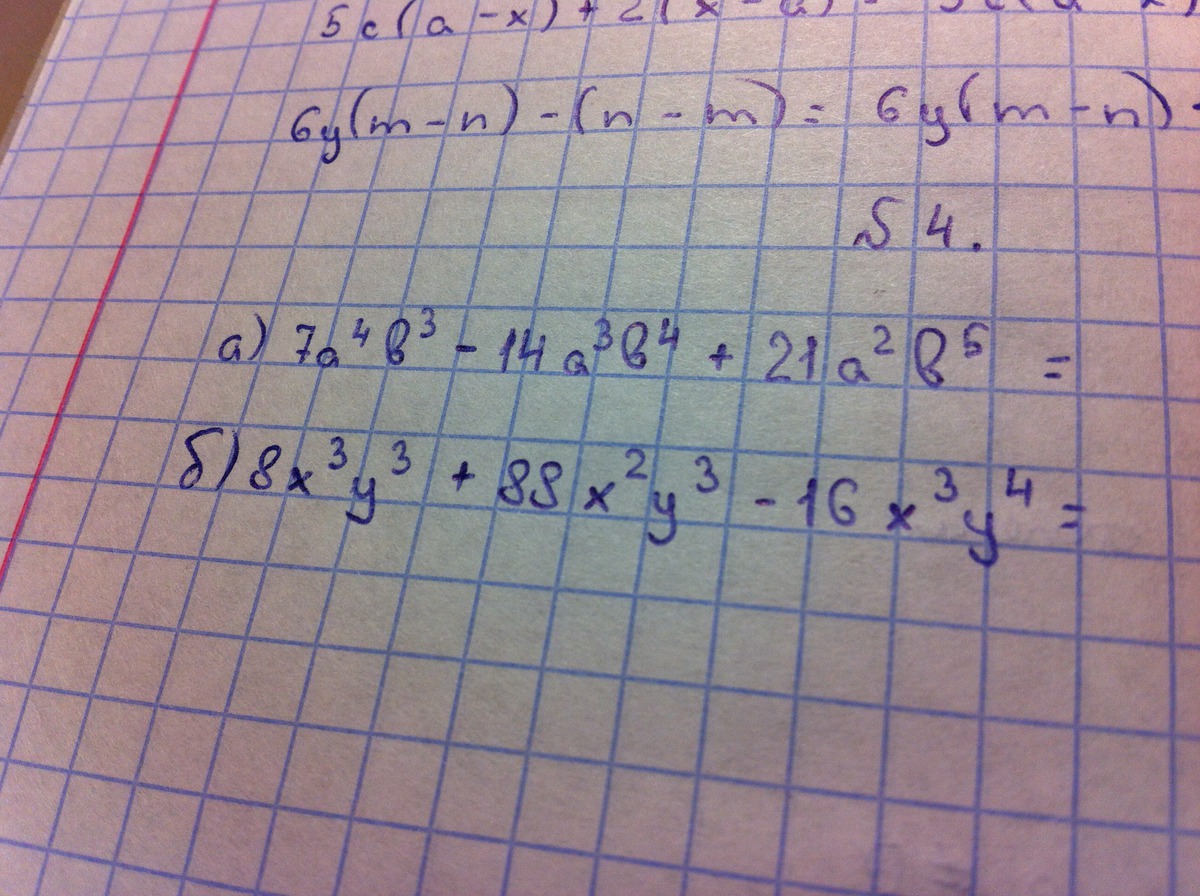 5c(a-x)+2(x-a)=
6y(m-n)-(n-m)=6y(m-n)
№4.
а) 7a⁴b³-14a³b⁴+21a²b⁵=
б) 8x³y³+88x²y³-16x³y⁴=